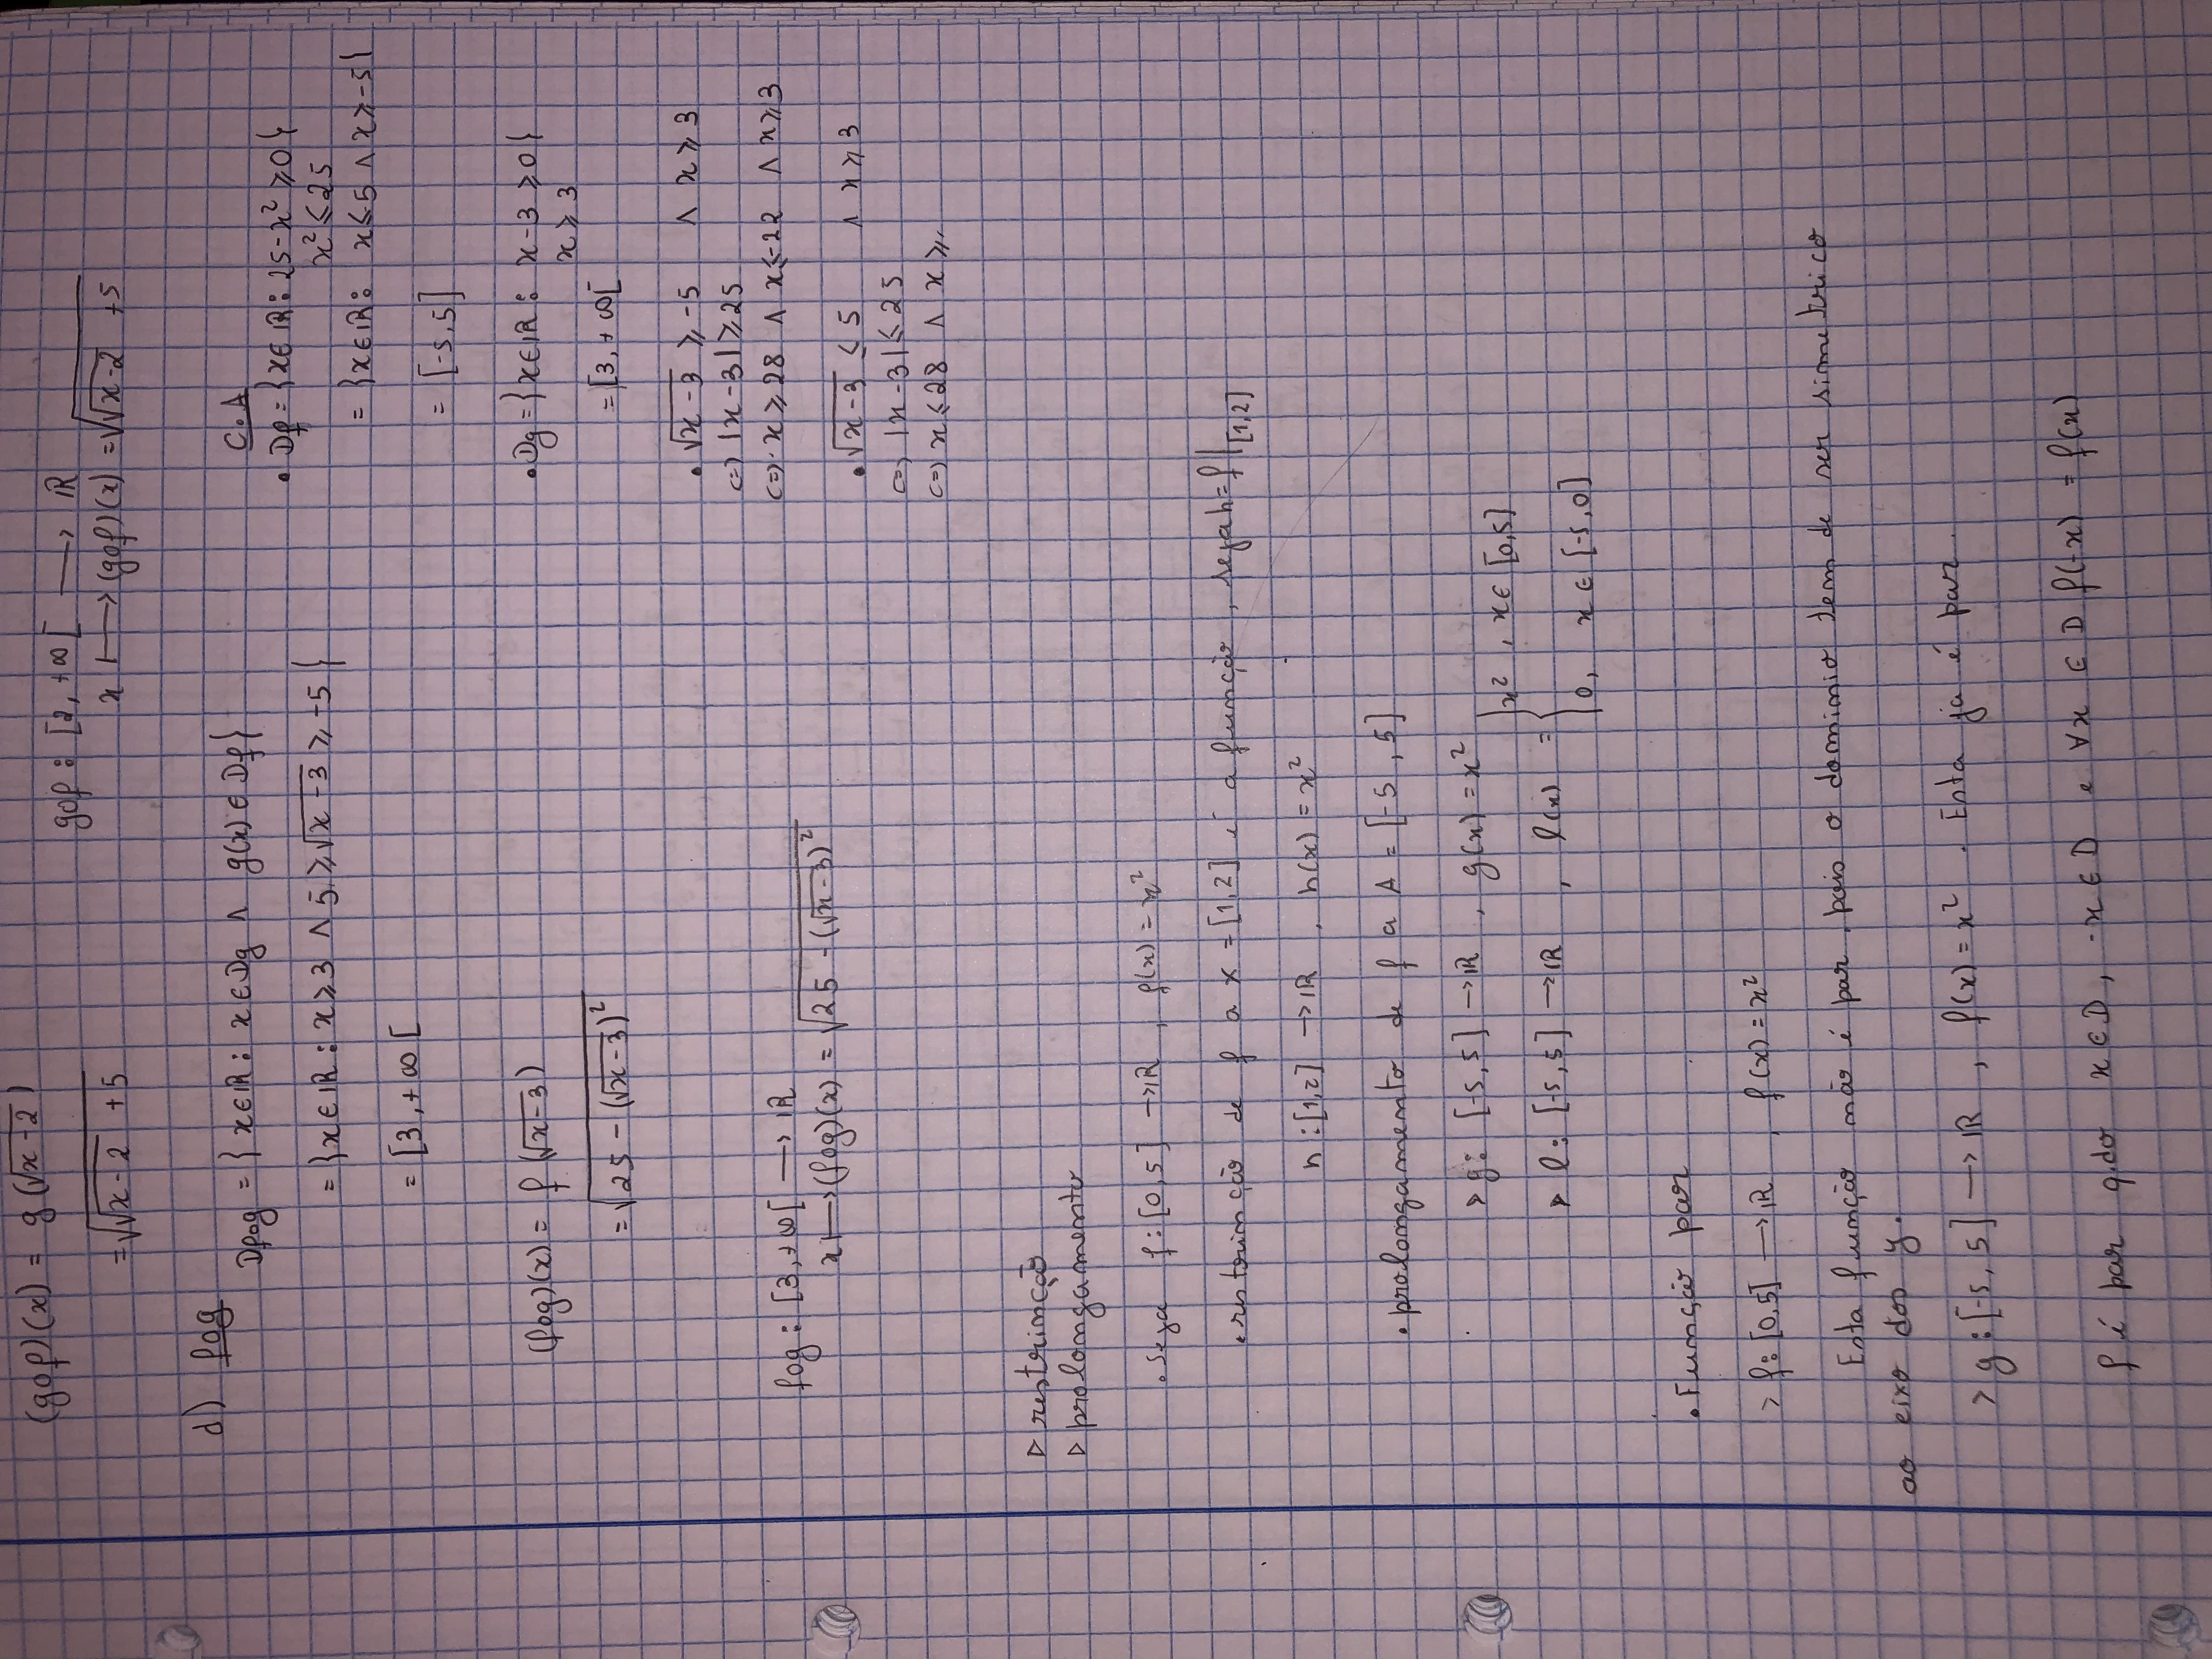 (gof)(x) = g(√x-2)
= √√x-2 + 5
gof : [2, +∞[ ⟶ ℝ
x ⟼ (gof)(x) = √√x-2 +5
d) fog
Dfog = { x∈ℝ : x∈Dg ∧ g(x)∈Df}
= {x∈ℝ : x⩾3 ∧ 5 ⩾ √x-3 ⩾ -5}
= [3, +∞[
(fog)(x) = f(√x-3)
= √25 - (√x-3)²
fog : [3, +∞[ ⟶ ℝ
x ⟼ (fog)(x) = √25 - (√x-3)²
C.A
• Df = {x∈ℝ : 25-x² ⩾0}
x² ⩽ 25
= {x∈ℝ : x⩽5 ∧ x⩾-5}
= [-5,5]
• Dg = {x∈ℝ : x-3 ⩾0}
x ⩾ 3
= [3, +∞[
• √x-3 ⩾ -5 ∧ x ⩾ 3
<=> |x-3| ⩾ 25
<=> x ⩾ 28 ∧ x ⩽ -22 ∧ x ⩾ 3
• √x-3 ⩽ 5 ∧ x ⩾ 3
<=> |x-3| ⩽ 25
<=> x ⩽ 28 ∧ x ⩾
▷ restrinção
▷ prolongamento
• Seja f : [0,5] →ℝ , f(x) = x²
• restrinção de f a x = [1,2] é a função , seja h = f|[1,2]
h : [1,2] →ℝ , h(x) = x²
• prolongamento de f a A = [-5, 5]
> g : [-5,5] →ℝ , g(x) = x²
> l : [-5,5] →ℝ , l(x) = { x² , x∈ [0,5]
0, x ∈ [-5,0]
• Função par
> f : [0,5] ⟶ ℝ , f(x) = x²
Esta função não é par, pois o dominio tem de ser simetrico
ao eixo dos y.
> g : [-5, 5] ⟶ ℝ , f(x) = x² . Esta ja é par.
f é par q.do x∈D, -x∈D e ∀x ∈ D f(-x) = f(x)